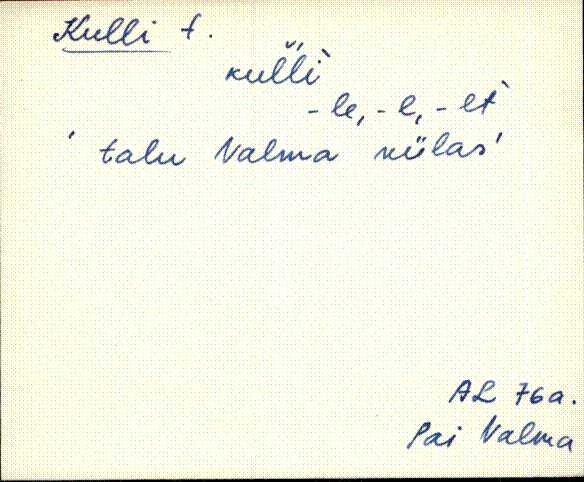 Kulli t.
kulli
-le, -l, -lt
'talu Valma külas'
AL 76a.
Pai Valma